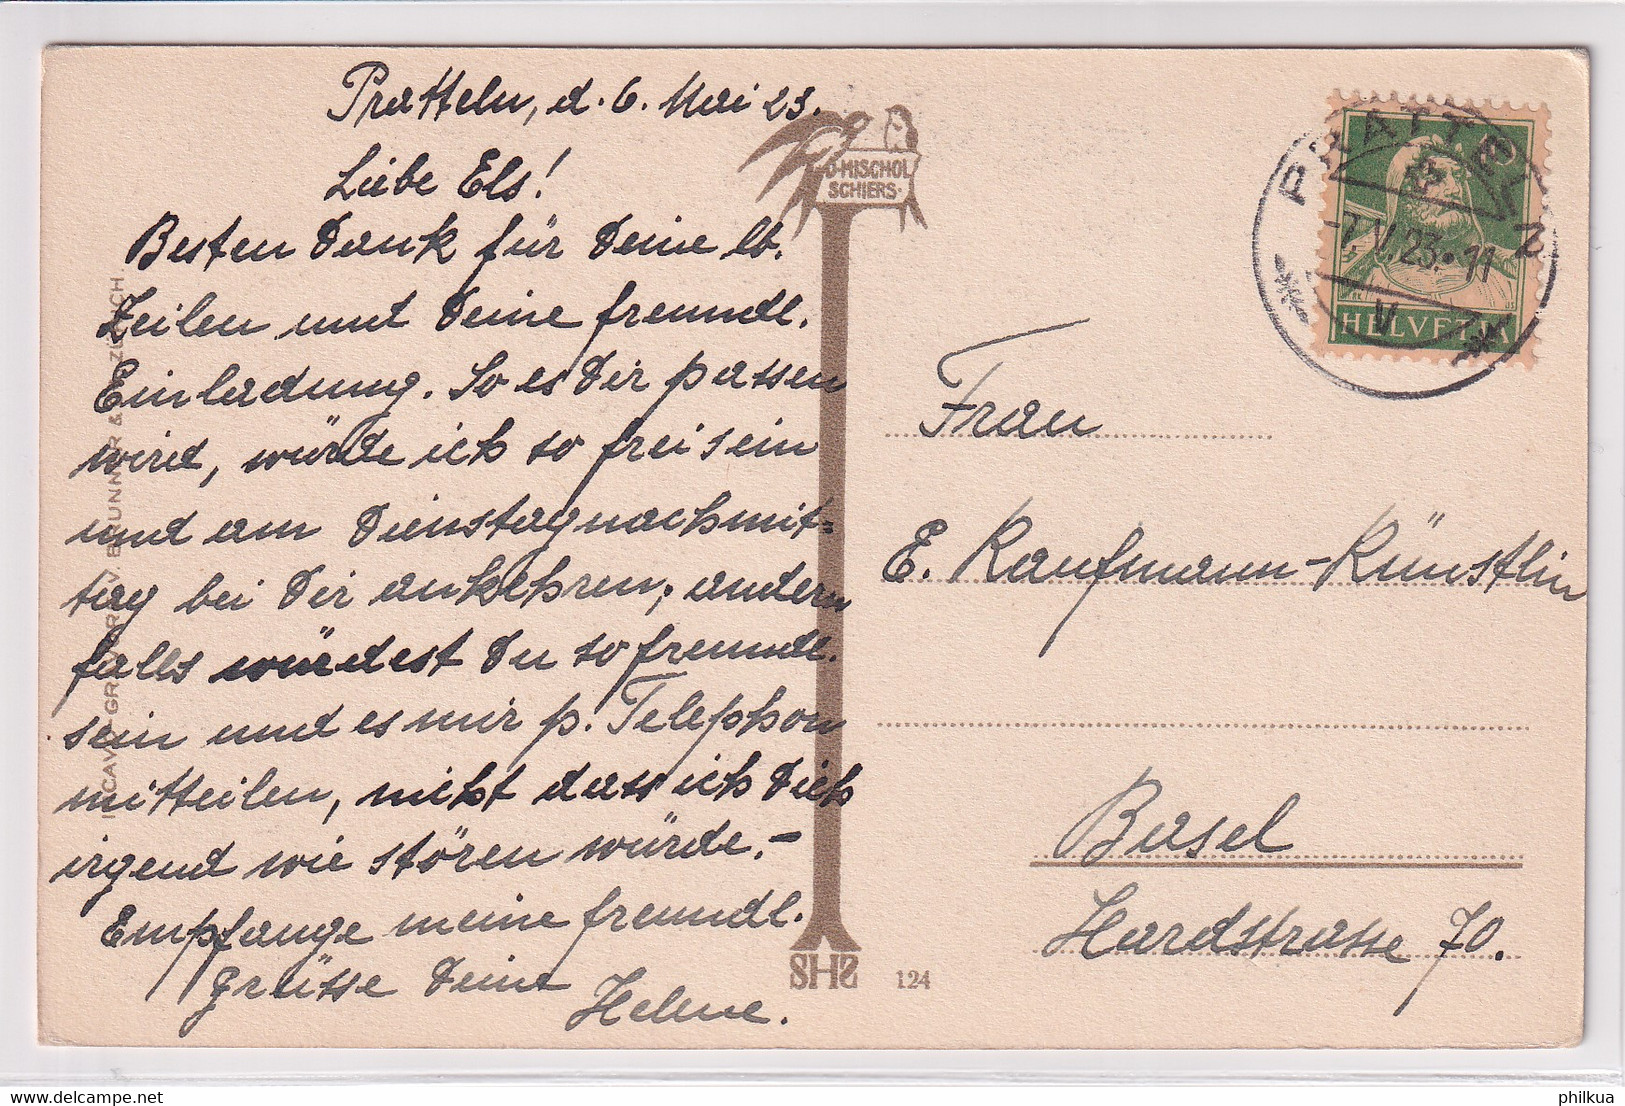 Pratteln, d. 6. Mai 23.
Liebe Els!
Besten Dank für Deine lb.
Zeilen und Deine freundl.
Einladung. So es Dir passen
wird, würde ich so frei sein
und am Dienstagnachmit-
tag bei Dir ankehren, andern
falls würdest Du so freundl.
sein und es mir p. Telephon
mitteilen, nicht dass ich Dich
irgend wie stören würde.-
Empfange meine freundl.
Grüsse Deine
Helene.
D. MISCHOL
SCHIERS.
SHS
124
BRUNNER &
PRATTELN
-7.V.23.-11
V
HELVETIA
Frau
E. Kaufmann-Künstlin
Basel
Hardstrasse 70.
www.delcampe.net
philkua